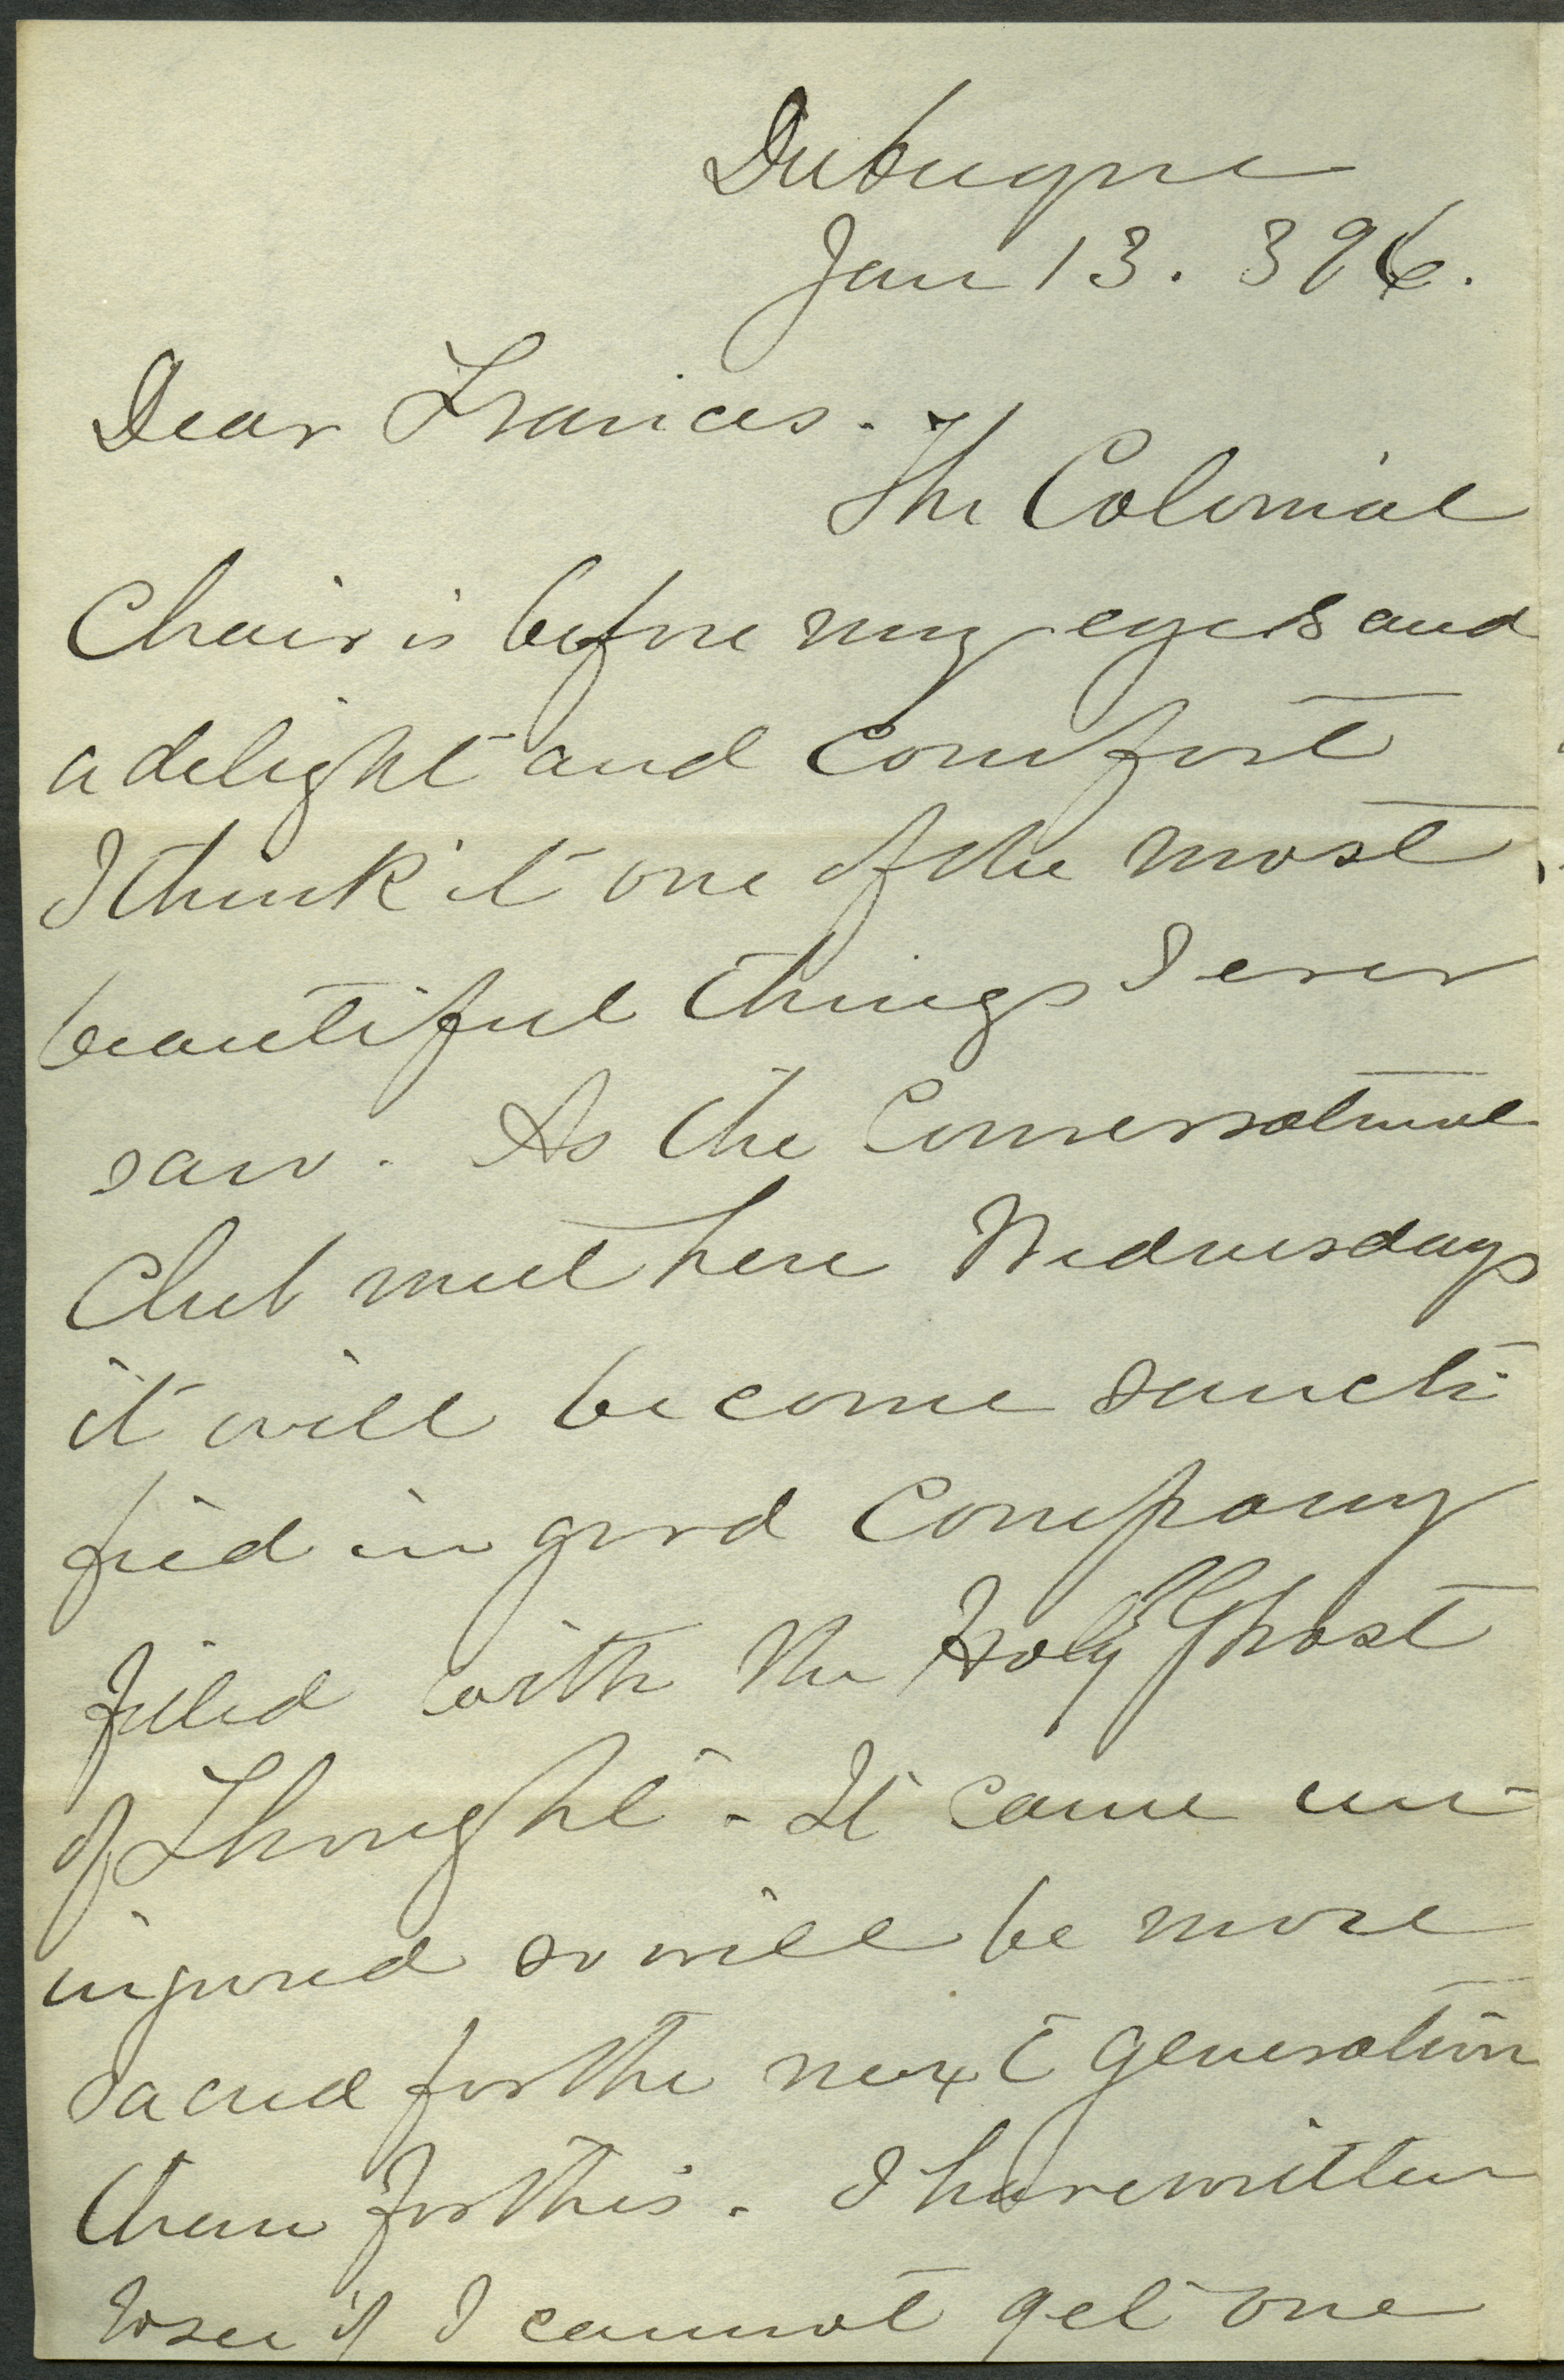 Dubuque
Jan 13. 396.
Dear Frances.
The Colonial
Chair is before my eyes and
a delight and comfort
I think it one of the most
beautiful things I ever
saw. As the Conversational
Club meet here Wednesdays
it will become sancti
fied in good company
filled with the Holy Ghost
of Thought. It came un
injured so will be more
sacred for the next generation
than for this. I have written
to see if I cannot get one